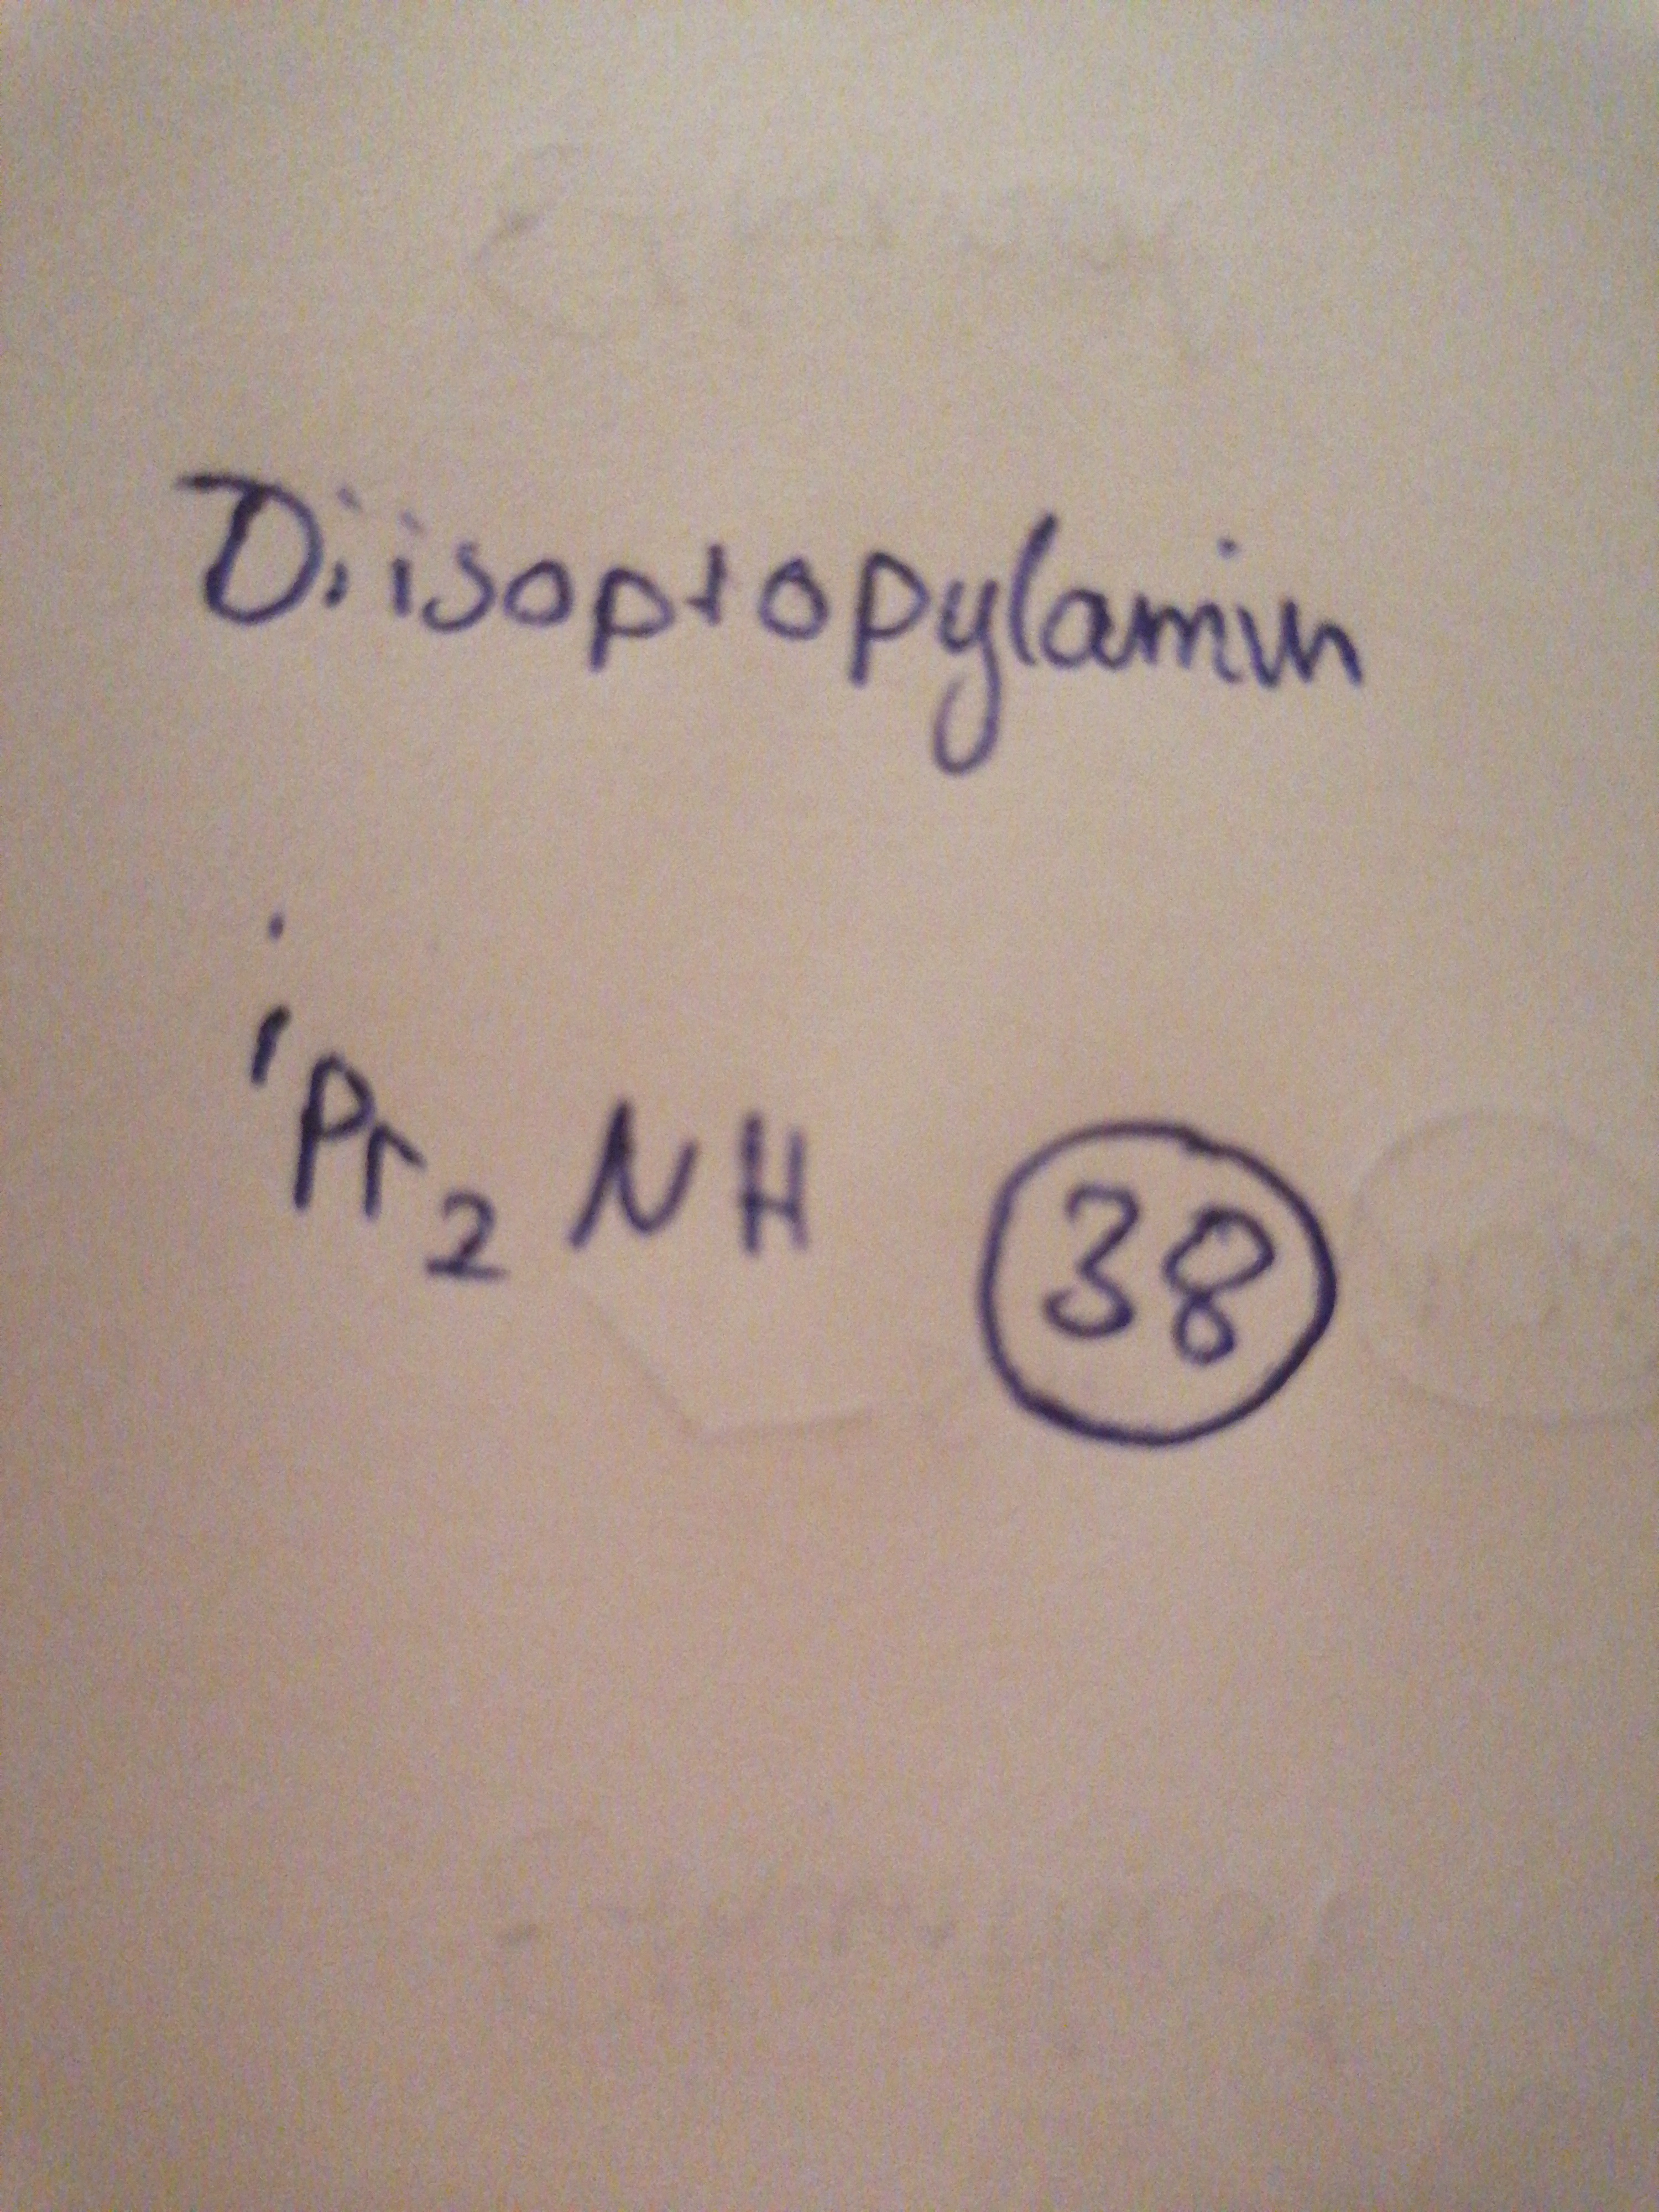 Diisopropylamin
iPr2NH 38